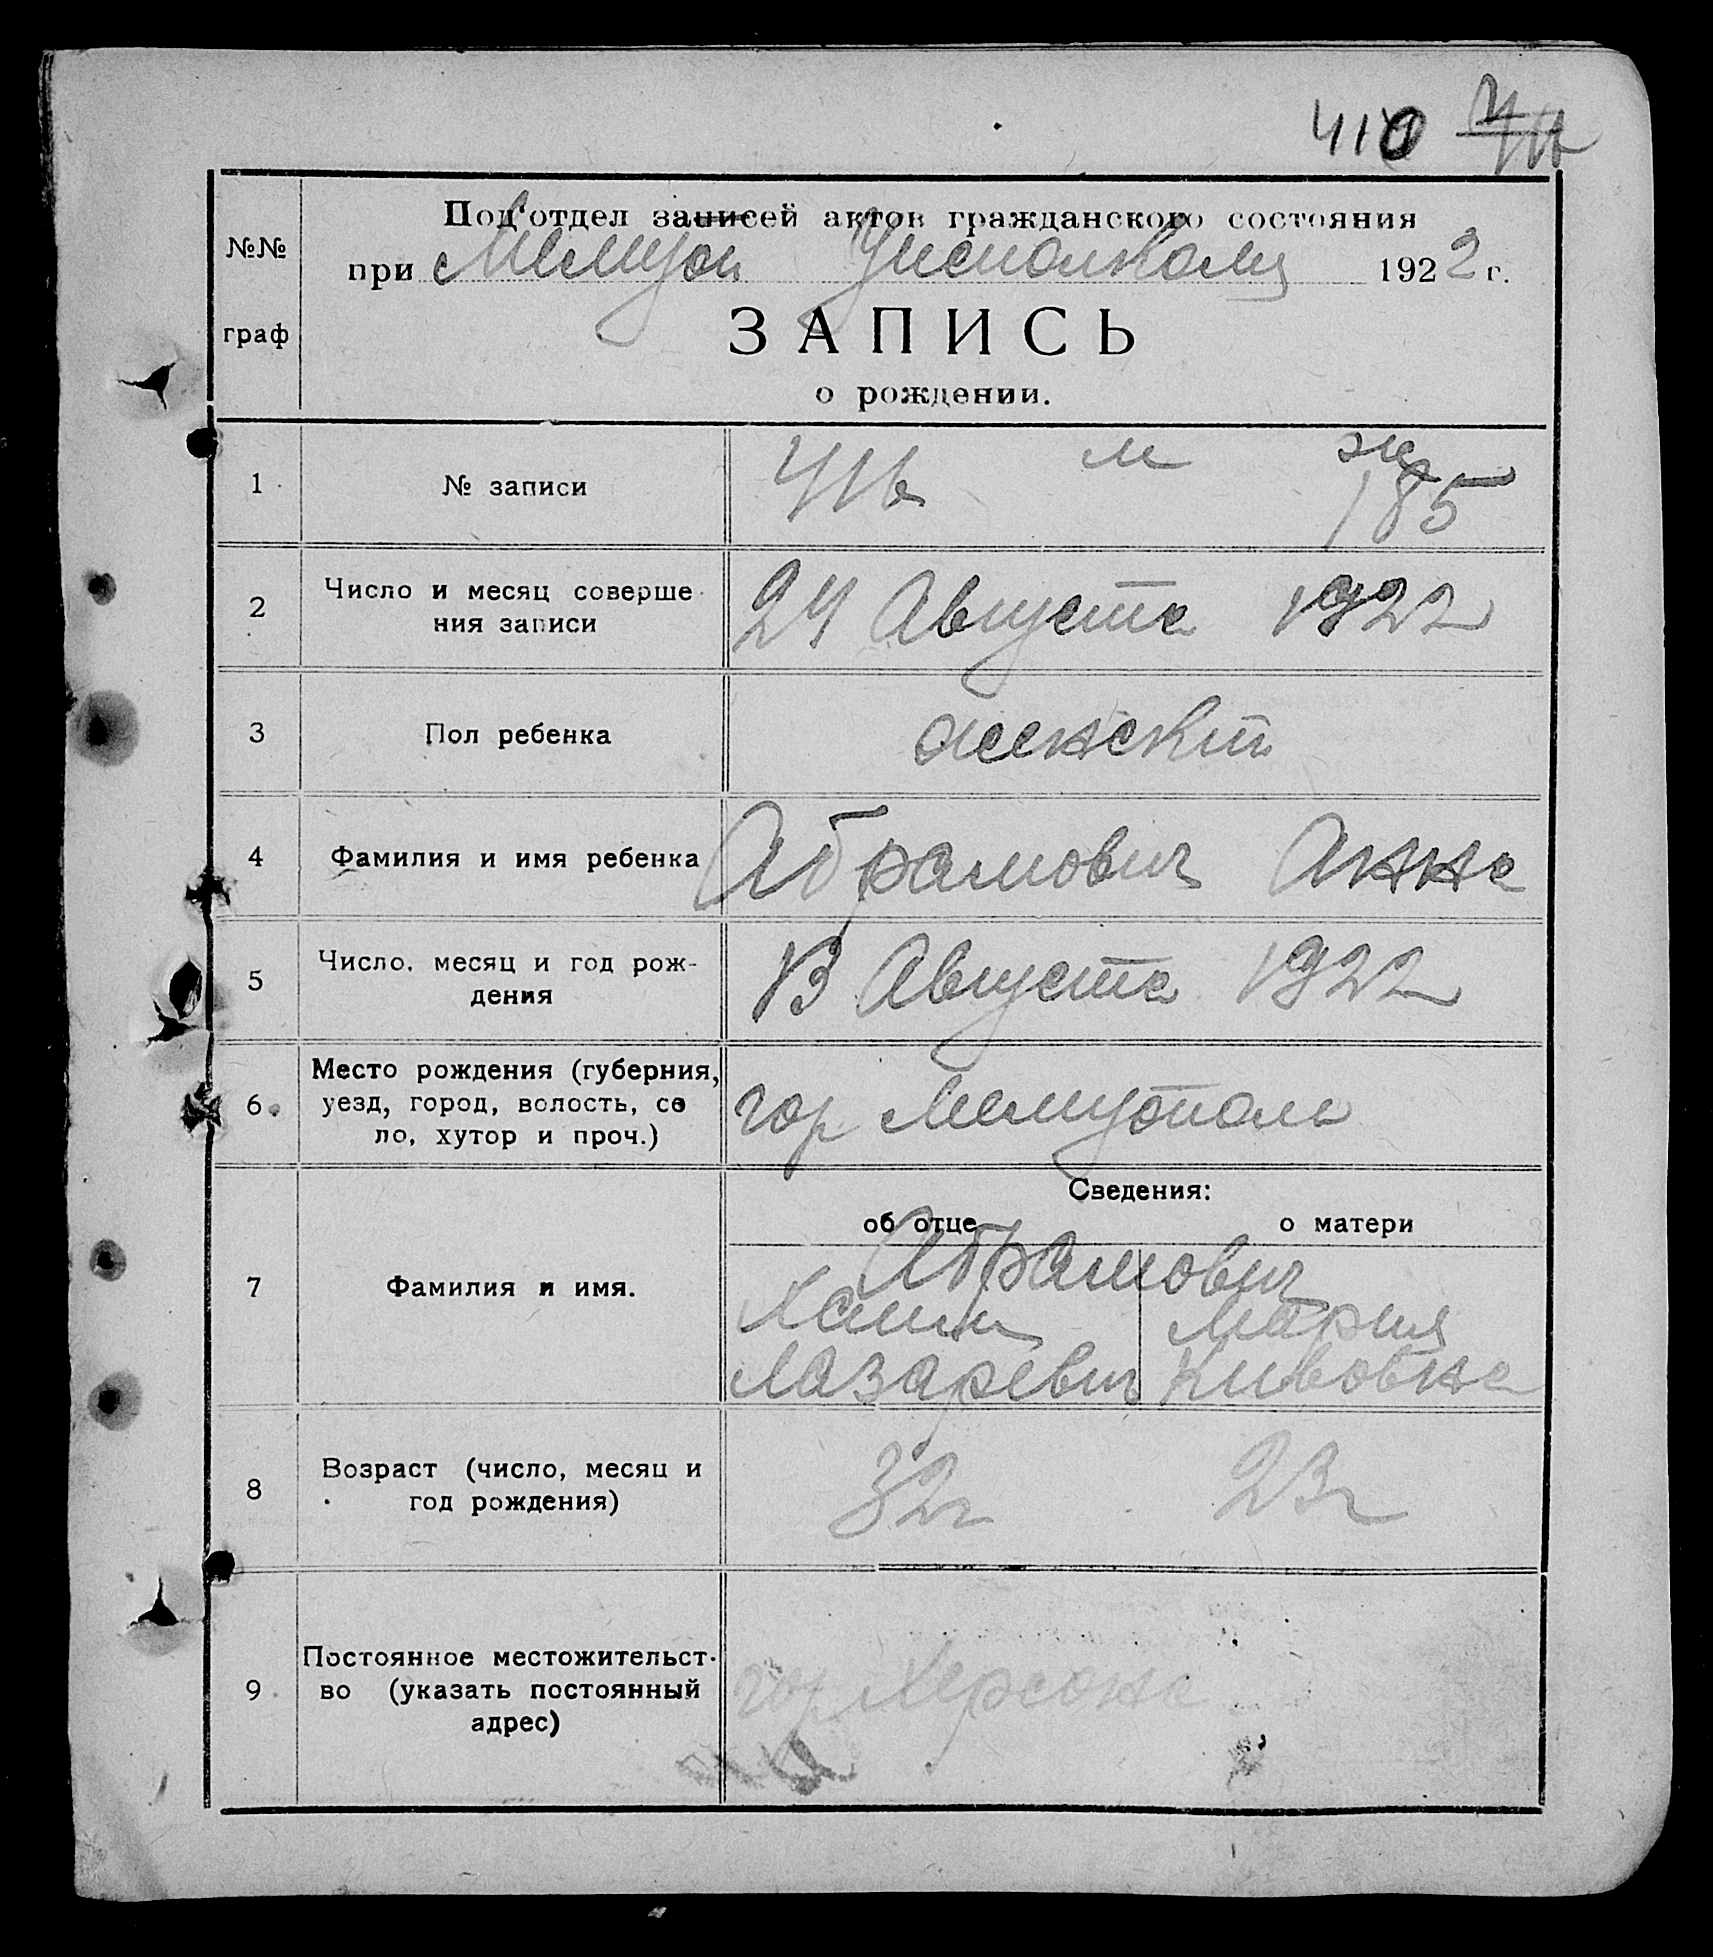 410
№№
граф
Под'отдел записей актов гражданского состояния
при Мелитоп Уисполкому 1922 г.
ЗАПИСЬ
о рождении.
1 № записи 416 м ж 185
2 Число и месяц соверше
ния записи
24 Августа 1922
3 Пол ребенка женский
4 Фамилия и имя ребенка Абрамович Анна
5 Число, месяц и год рож-
дения
13 Августа 1922
6 Место рождения (губерния,
уезд, город, волость, се
ло, хутор и проч.)
гор Мелитополь
Сведения:
об отце о матери
7 Фамилия и имя.
Абрамович
Хаим Мария
Лазаревич Кивовна
8 Возраст (число, месяц и
год рождения)
32г 23г
9 Постоянное местожительст-
во (указать постоянный
адрес)
гор Херсоне